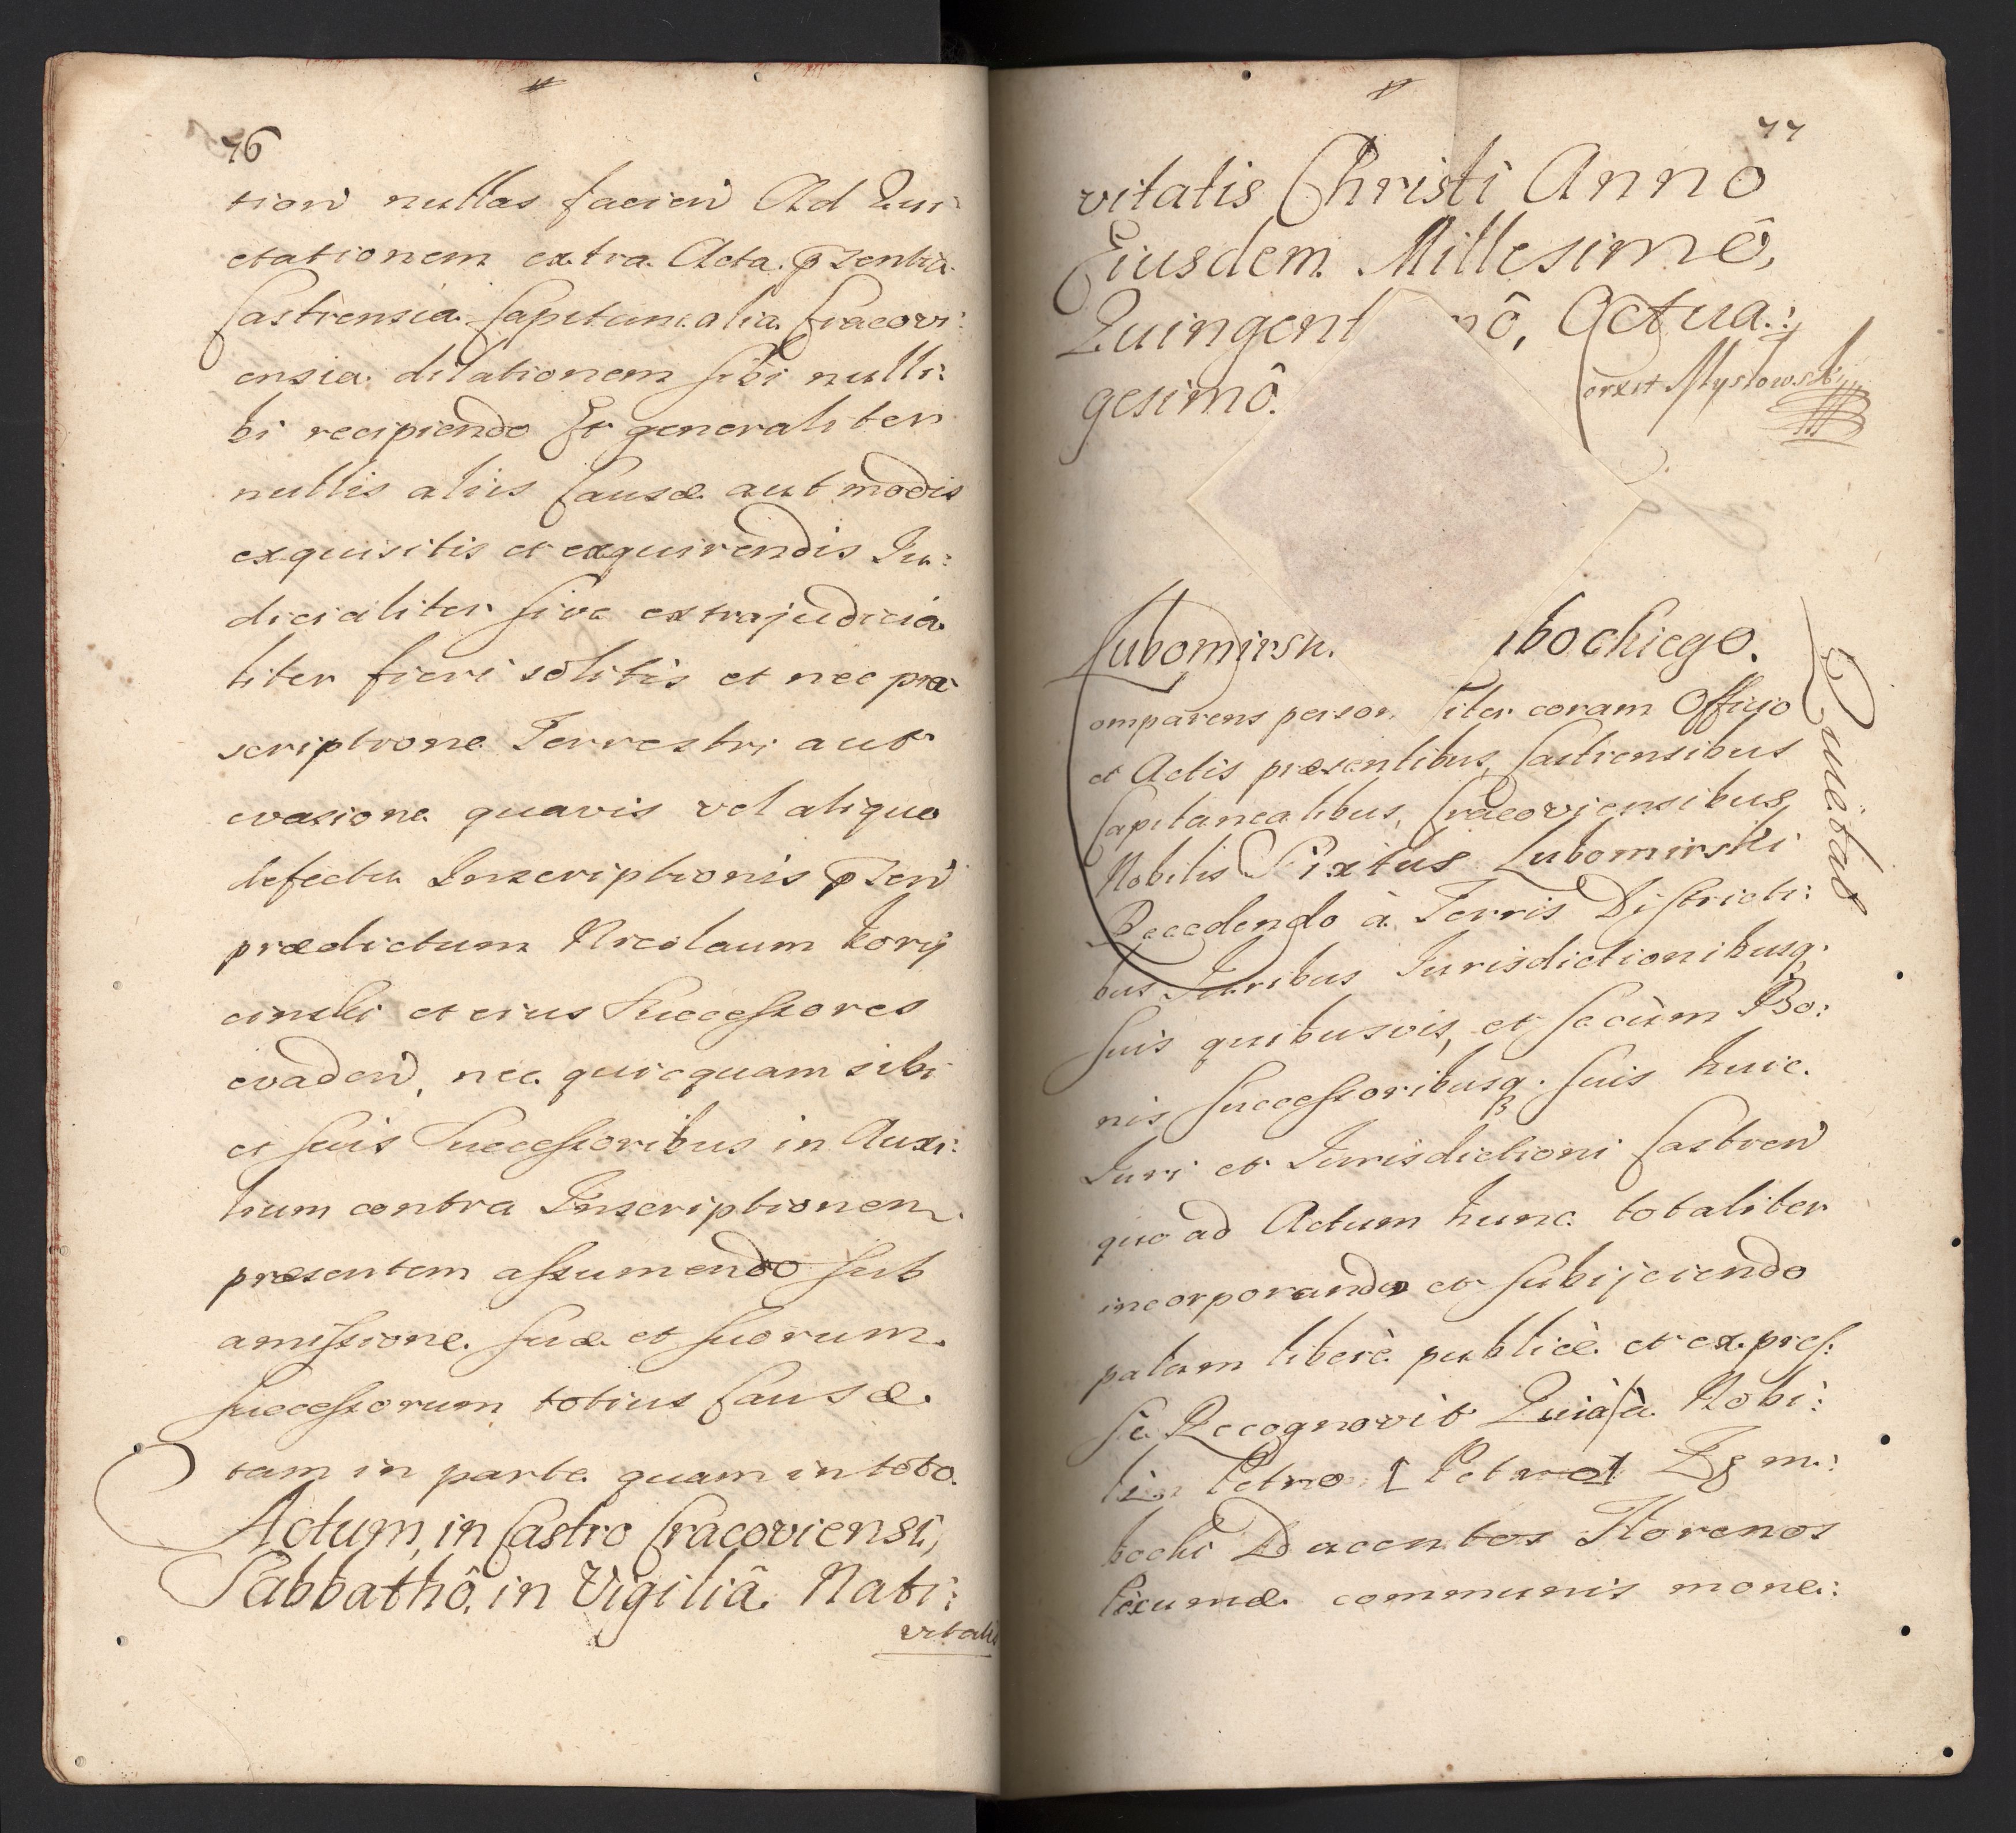 76
tion nullas facien Ad Qui:
etationem extra Acta pzentia
Castrensia Capitanealia Cracovi:
ensia dilationem sibi nulli:
bi recipiendo Et generaliter
nullis aliis Causæ aut modis
exquisitis et exquirendis Ju:
dicialiter sive extrajudicia
liter fieri solitis et nec præ
scriptione Terrestri aut
evasione quavis vel aliquo
defectu Inscriptionis pzen
prædictum Nicolaum Kory
cinski et eius Successores
evaden, nec quicquam sibi
et suis Successoribus in Auxi:
lium contra Inscriptionem
præsentem assumendo sub
amissione suæ et suorum
successorum totius Causæ
tam in parte quam in toto.
Actum in Castro Cracoviensi,
Sabbathô in Vigiliâ Nati:
vitalis
77
vitatis Christi Anno
Eiusdem Millesimô,
Quingent mô, Octua:
gesimô.
Lubomirsk. bochiego.
Quietat
omparens person liter coram Officio
et Actis præsentibus, Castrensibus
Capitanealibus, Cracoviensibus,
Nobilis Sixtus Lubomirski
Recedendo à Terris Districti:
bus Juribus Jurisdictionibusq.
suis quibusvis, et se cùm Bo:
nis Successoribusq. suis huic
Juri et Jurisdictioni Castren
quo ad Actum hunc totaliter
incorporando et subijciendo
palam liberè publicè et expres:
sè Recognovit Quia à Nobi:
li Petro [Petro] Zgm:
bochi Ducentos Florenos
Pecuniæ communis mone: